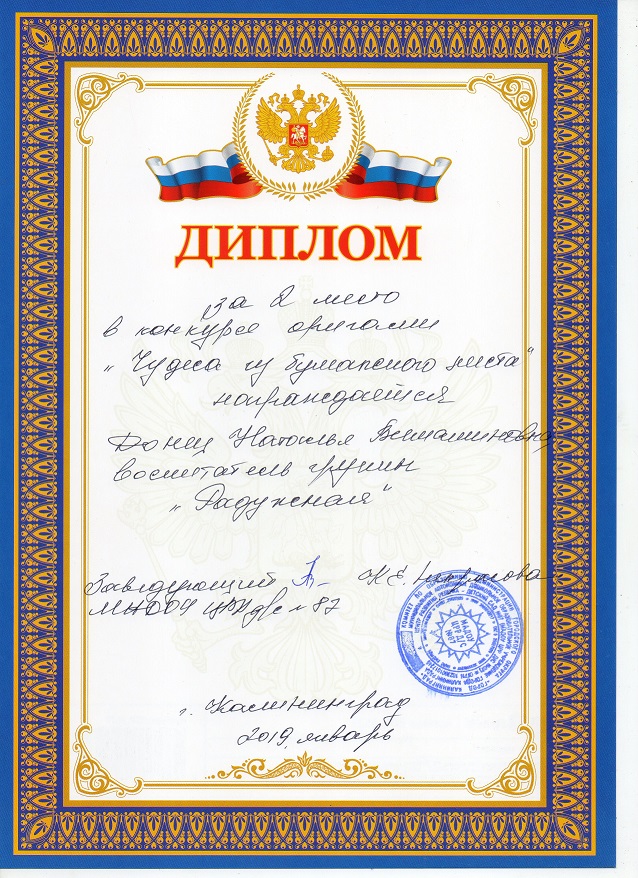 ДИПЛОМ
за 2 место
в конкурсе оригами
„Чудеса из бумажного листа"
награждается
Донец Наталья Вениаминовна
воспитатель группы
„Радужная"
Заведующий К.Е.
МАДОУ ЦРР д/с № 87
МАДОУ
ЦРР Д/С
№87
г. Калининград
2019, январь